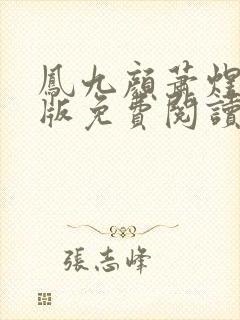 鳳九顏蕭煌
版免費閱讀
張志峰